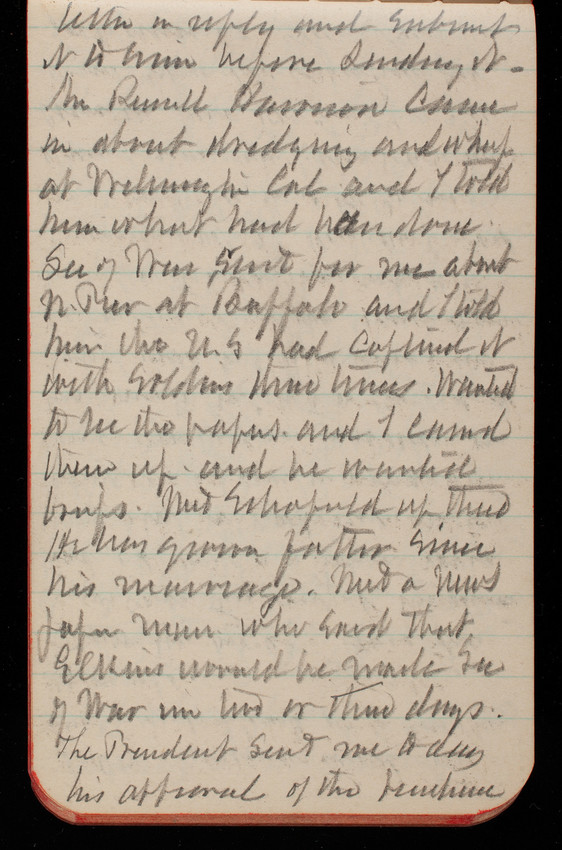 letter in reply and submit
it to him before sending it -
Mr Russell Harrison came
in about dredging and wharf
at Wilmington Cal and I told
him what had been done.
Sec of War sent for me about
N. Pier at Buffalo and I told
him the U.S had captured it
with soldiers three times. Wanted
to see the papers. and I carried
them up and he wanted
briefs. Met Schofield up there
He has grown fatter since
his marriage. Met a News
paper man who said that
Elkins would be made Sec
of War in two or three days.
The President sent me to day
his approval of the